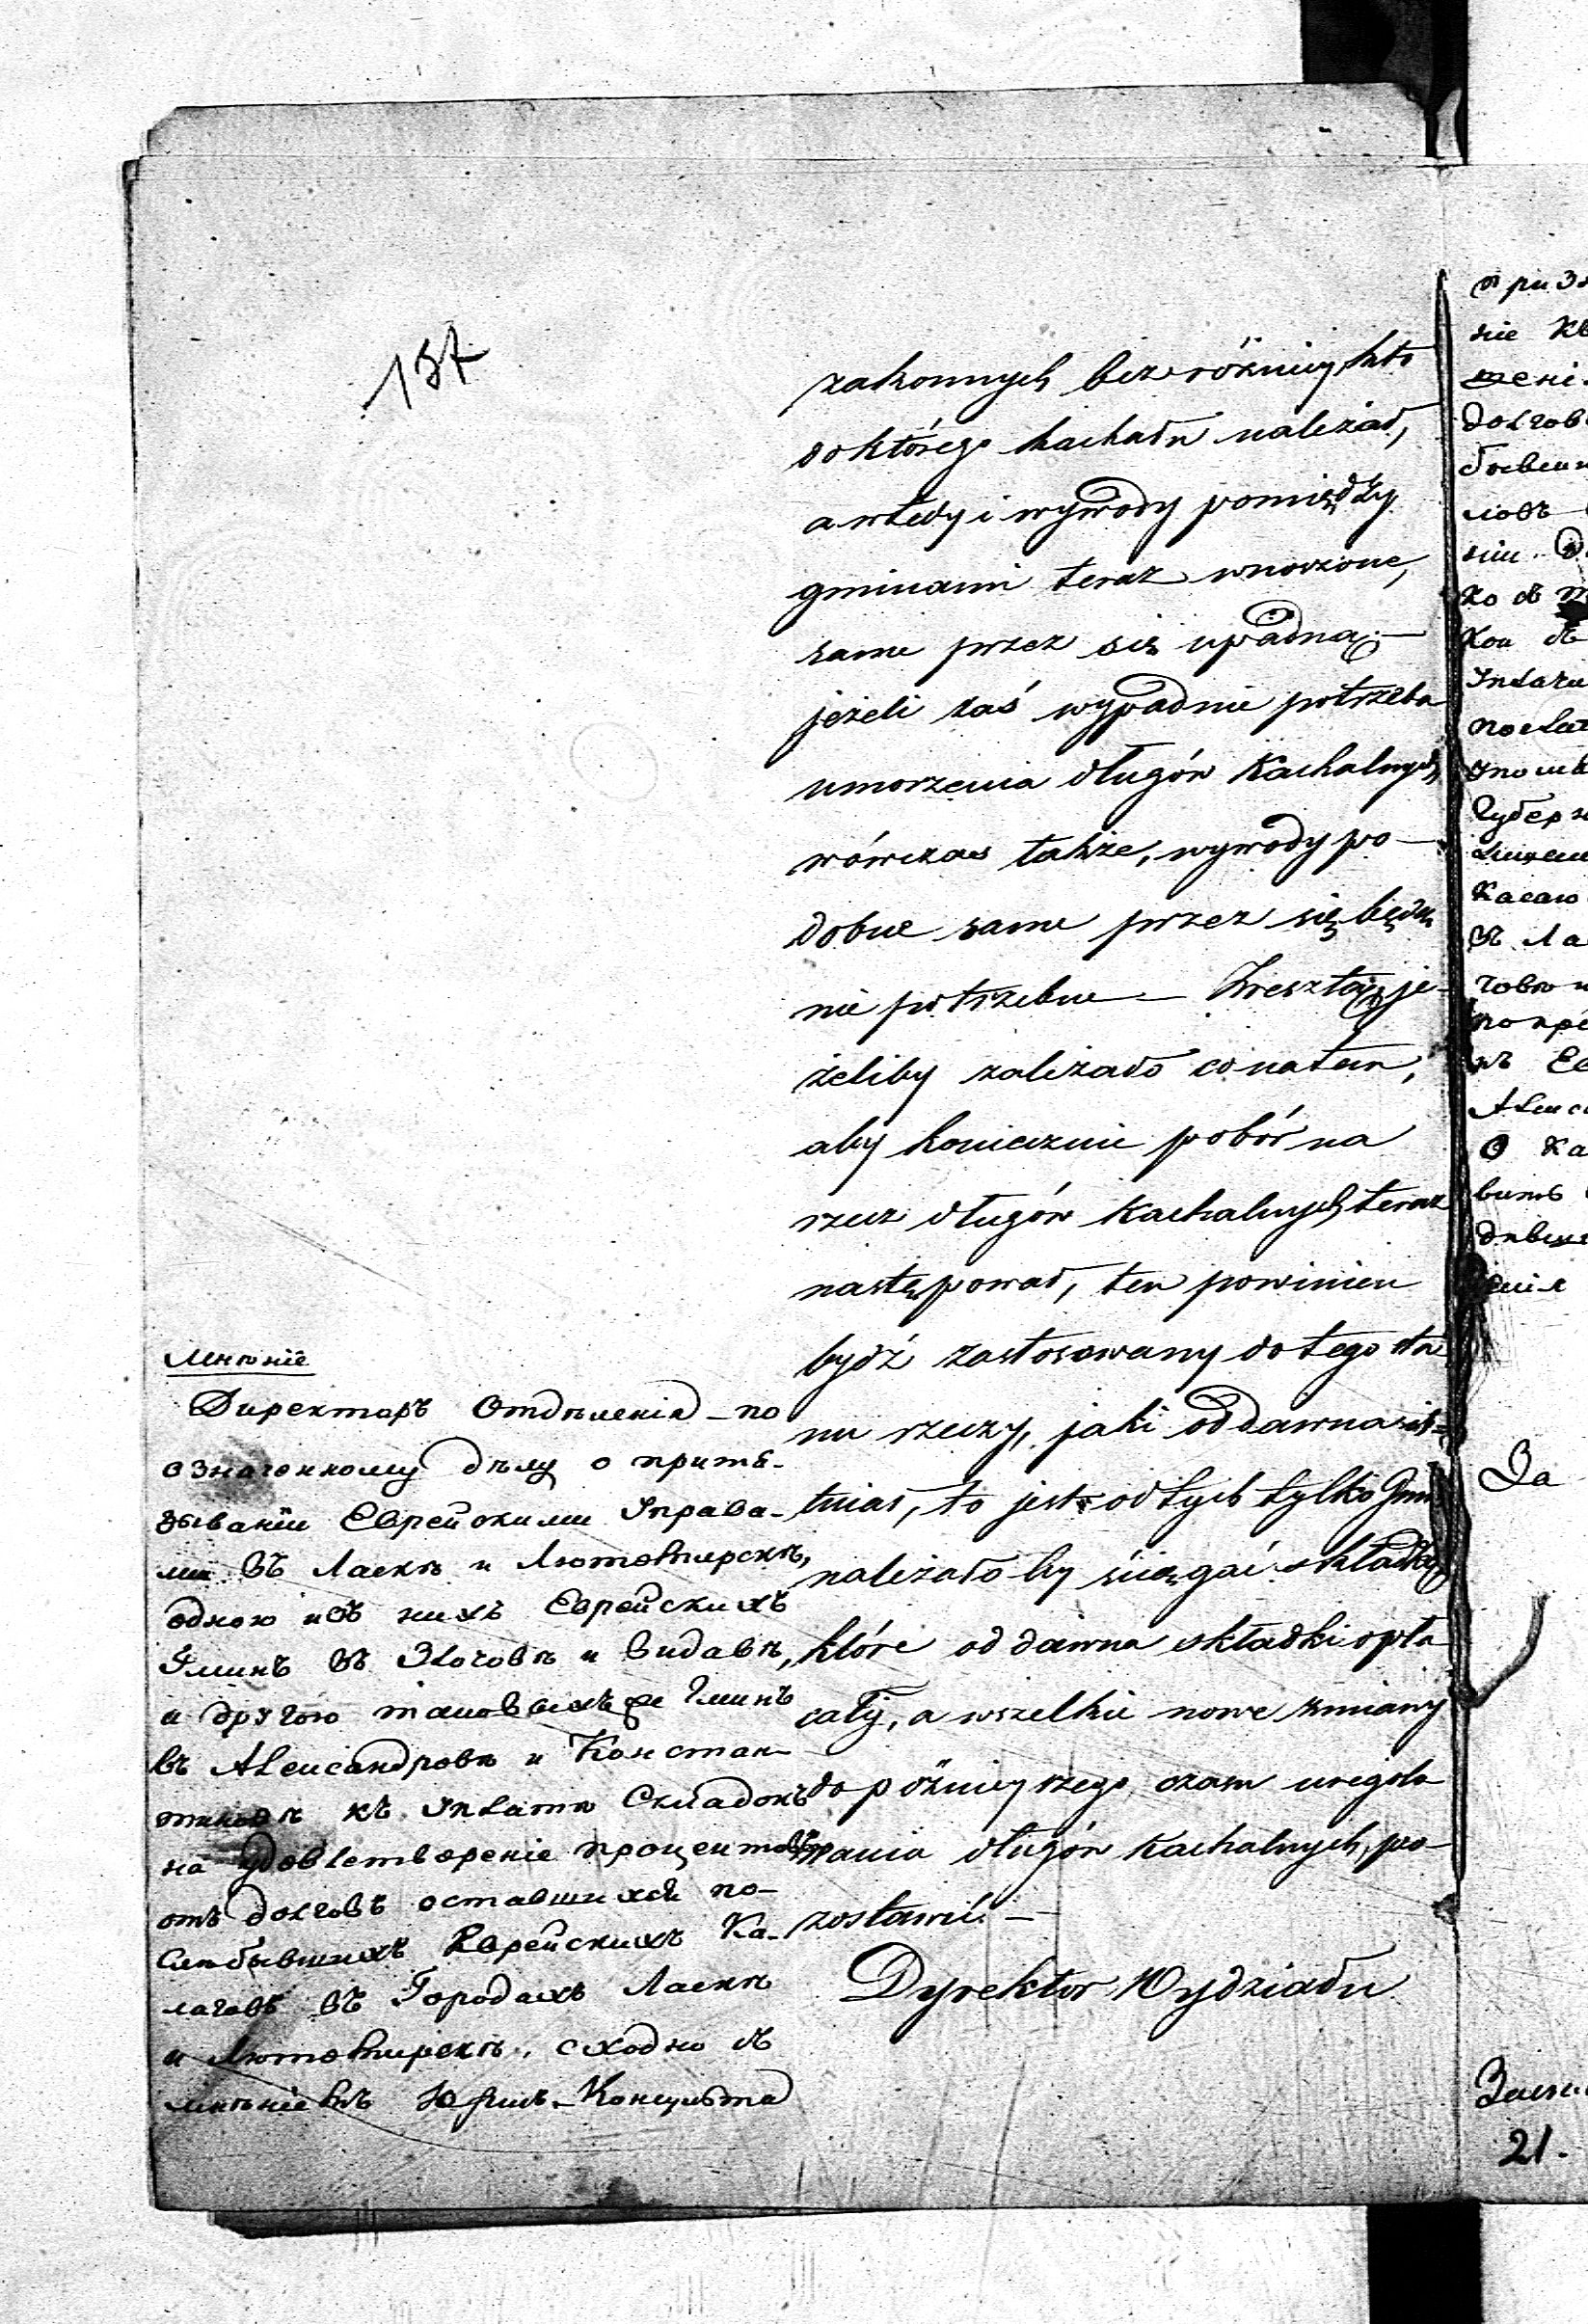 137
zakonnych bez różnicy, kto
do którego kachału należał,
a wtedy i wywody pomiędzy
gminami teraz wnoszone,
same przez się upadną; —
jeżeli zaś wypadnie potrzeba
umorzenia długów Kachalnych,
wówczas także, wywody po-
dobne same przez się będą
nie potrzebne — Zresztą, je-
żeliby zależało co na tem,
aby koniecznie pobór na
rzecz długów Kachalnych teraz
następował, ten powinien
bydź zastosowany do tego sta
nu rzeczy, jaki od dawna ist-
tniał, to jest: od tych tylko Gmin
należało-by ściągać składkę,
które od dawna składki opła
cały, a wszelkie nowe zmiany
do późniejszego czasu uregulo
wania długów Kachalnych, po-
zostawić. —
Dyrektor Wydziału
Мнѣніе
Директоръ Отдѣленія по
означенному дѣлу о притя-
зываніи Еврейскими Управа-
ми въ Ласкѣ и Лютомирскѣ,
одною изъ нихъ Еврейскихъ
Гминъ въ Злочовѣ и Видавѣ,
и другою таковыхъ же Гминъ
въ Александровѣ и Констан-
тиновѣ къ уплатѣ Складокъ
на удовлетвореніе процентовъ
отъ долговъ оставшихся по-
слѣ бывшихъ Еврейскихъ Ка-
галовъ въ Городахъ Ласкѣ
и Лютомирскѣ, сходно съ
мнѣніемъ Юрис-Консульта
при
ніе
долгов
ловъ
Губерн
Касаю
въ Ла
къ Ев
о ка
вить
За
21.